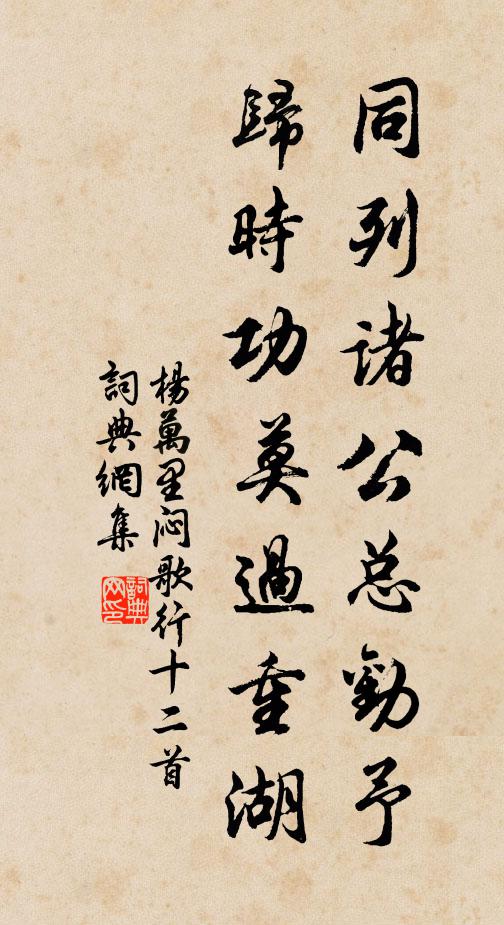 同列诸公总勸予
歸時功莫過重湖
楊萬里闷歌行十二首
詞典網集
詞典網印